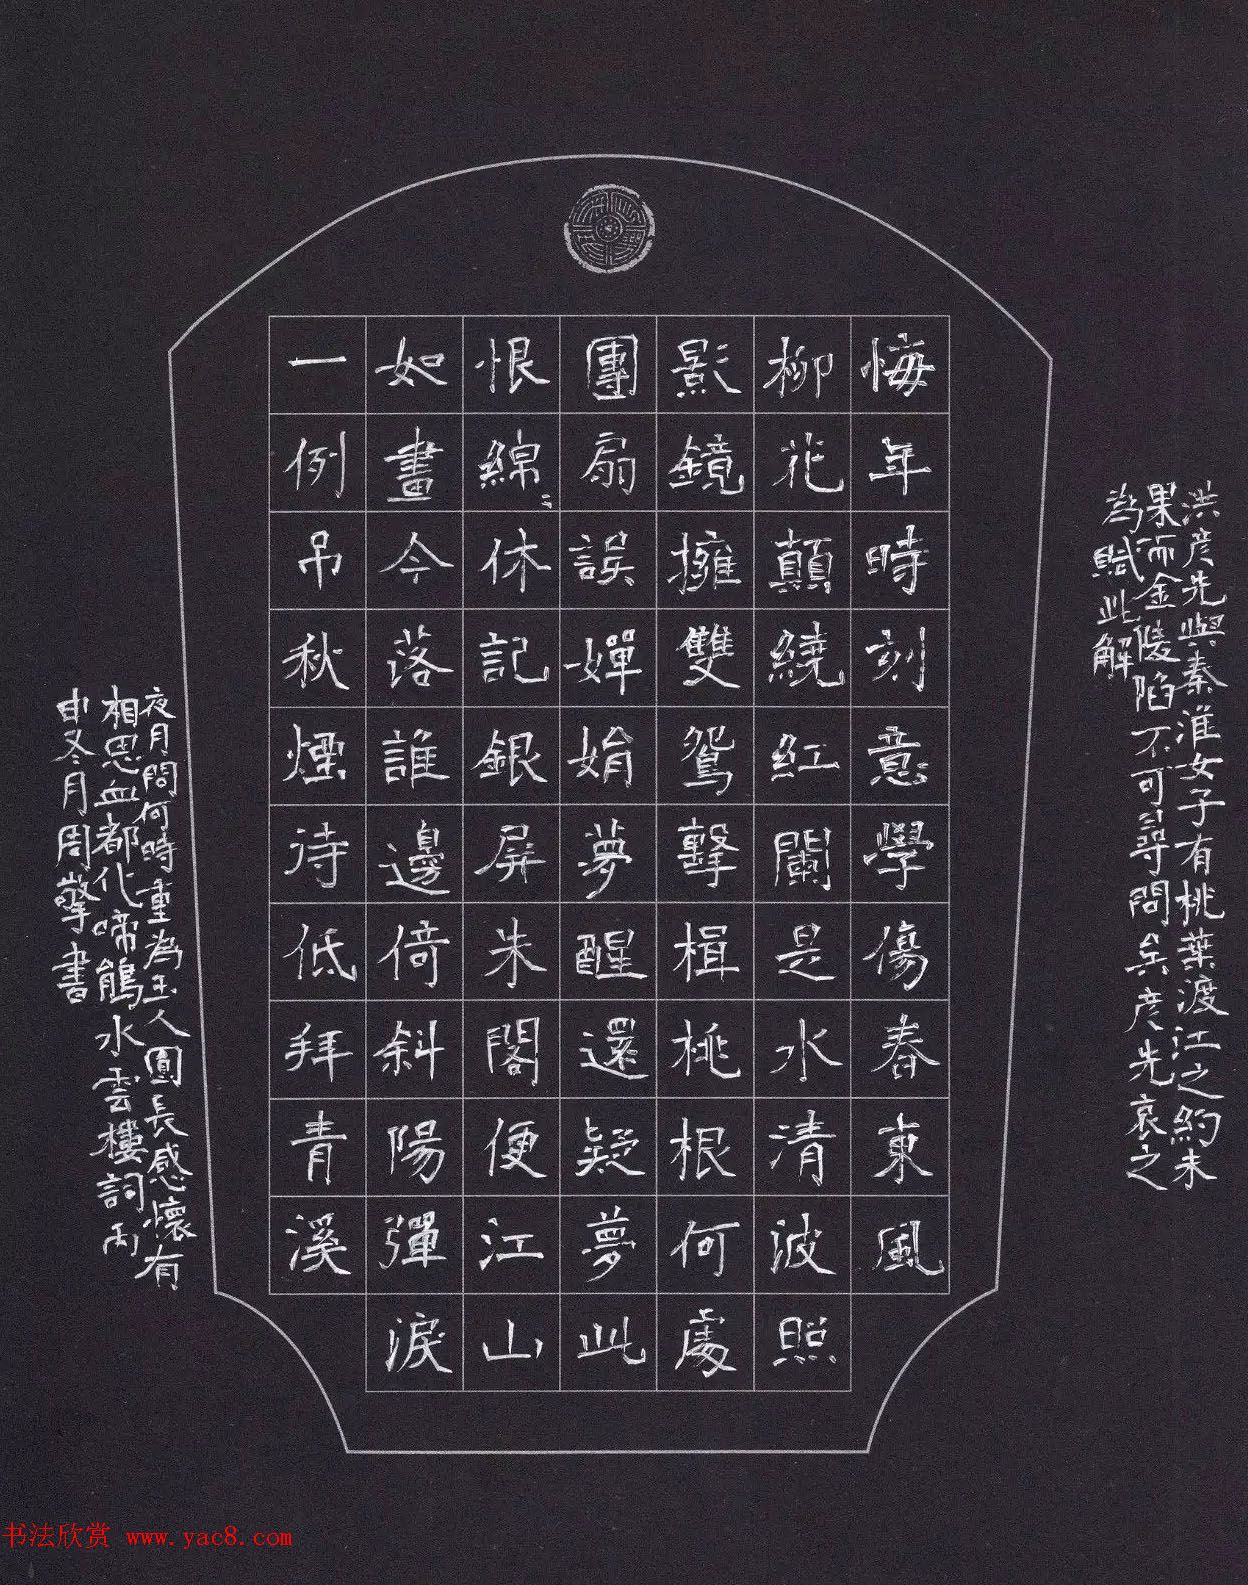 洪彦先與秦淮女子有桃葉渡江之約未
果而金陵陷不可尋問矣彦先哀之
為賦此解
悔年時刻意學傷春東風
柳花顛繞紅闌是水清波照
影鏡擁雙鴛擊楫桃根何處
團扇誤嬋娟夢醒還疑夢此
恨綿〻休記銀屏朱閣便江山
如畫今落誰邊倚斜陽彈淚
一例吊秋煙待低拜青溪
夜月問何時重為玉人圓長感懷有
相思血都化啼鵑水雲樓詞丙
申冬月周擎書
书法欣赏 www.yac8.com